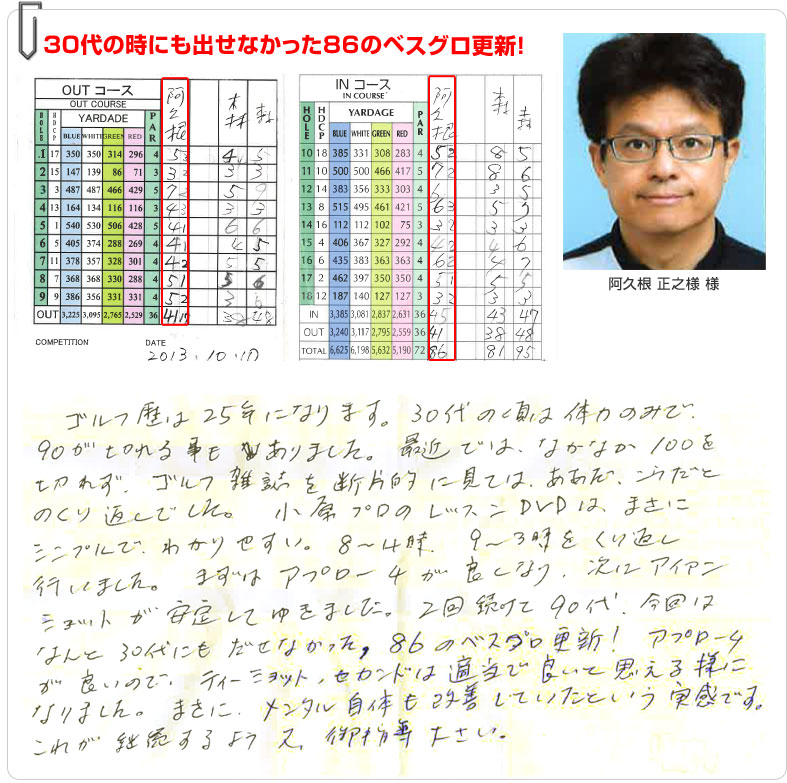 30代の時にも出せなかった86のベスグロ更新!
OUT コース
OUT COURSE
HOLE HDCP YARDADE PAR
BLUE WHITE GREEN RED
.1 17 350 350 314 296 4
2 15 147 139 86 71 3
3 3 487 487 466 429 5
4 13 164 134 116 116 3
5 1 540 530 506 428 5
6 5 405 374 288 269 4
7 11 378 357 328 301 4
8 7 368 368 330 288 4
9 9 386 356 331 331 4
OUT 3,225 3,095 2,765 2,529 36
COMPETITION DATE
2013.10.
IN コース
IN COURSE
HOLE HDCP YARDAGE PAR
BLUE WHITE GREEN RED
10 18 385 331 308 283 4 52 8 5
11 10 500 500 466 417 5 72 8 6
12 14 383 356 333 303 4 6 3 5
13 8 515 495 461 421 5 63 5
14 16 112 112 102 75 3 3 3
15 4 406 367 327 292 4 42 4 6
16 6 435 383 363 363 4 62 4 7
17 2 462 397 350 350 4 51 5 5
18 12 187 140 127 127 3 33 3 3
IN 3,385 3,081 2,837 2,631 36 45 43 47
OUT 3,240 3,117 2,795 2,559 36 41 38 48
TOTAL 6,625 6,198 5,632 5,190 72 86 81 95
阿久根 正之様 様
ゴルフ歴は25年になります。30代の頃は体力のみで、
90が切れる事もありました。最近では、なかなか100を
切れず、ゴルフ雑誌を断片的に見ては、ああだ、こうだと
のくり返しでした。小原プロのレッスンDVDは、まさに
シンプルで、わかりやすい。8〜4時、9〜3時をくり返し
行いました。まずはアプローチが良くなり、次にアイアン
ショットが安定してゆきました。2回続けて90代、今回は
なんと30代にもだせなかった、86のベスグロ更新！アプローチ
が良いので、ティーショット、セカンドは適当で良いと思える様に
なりました。まさに、メンタル自体も改善していたという実感です。
これが継続するよう 御指導 下さい。